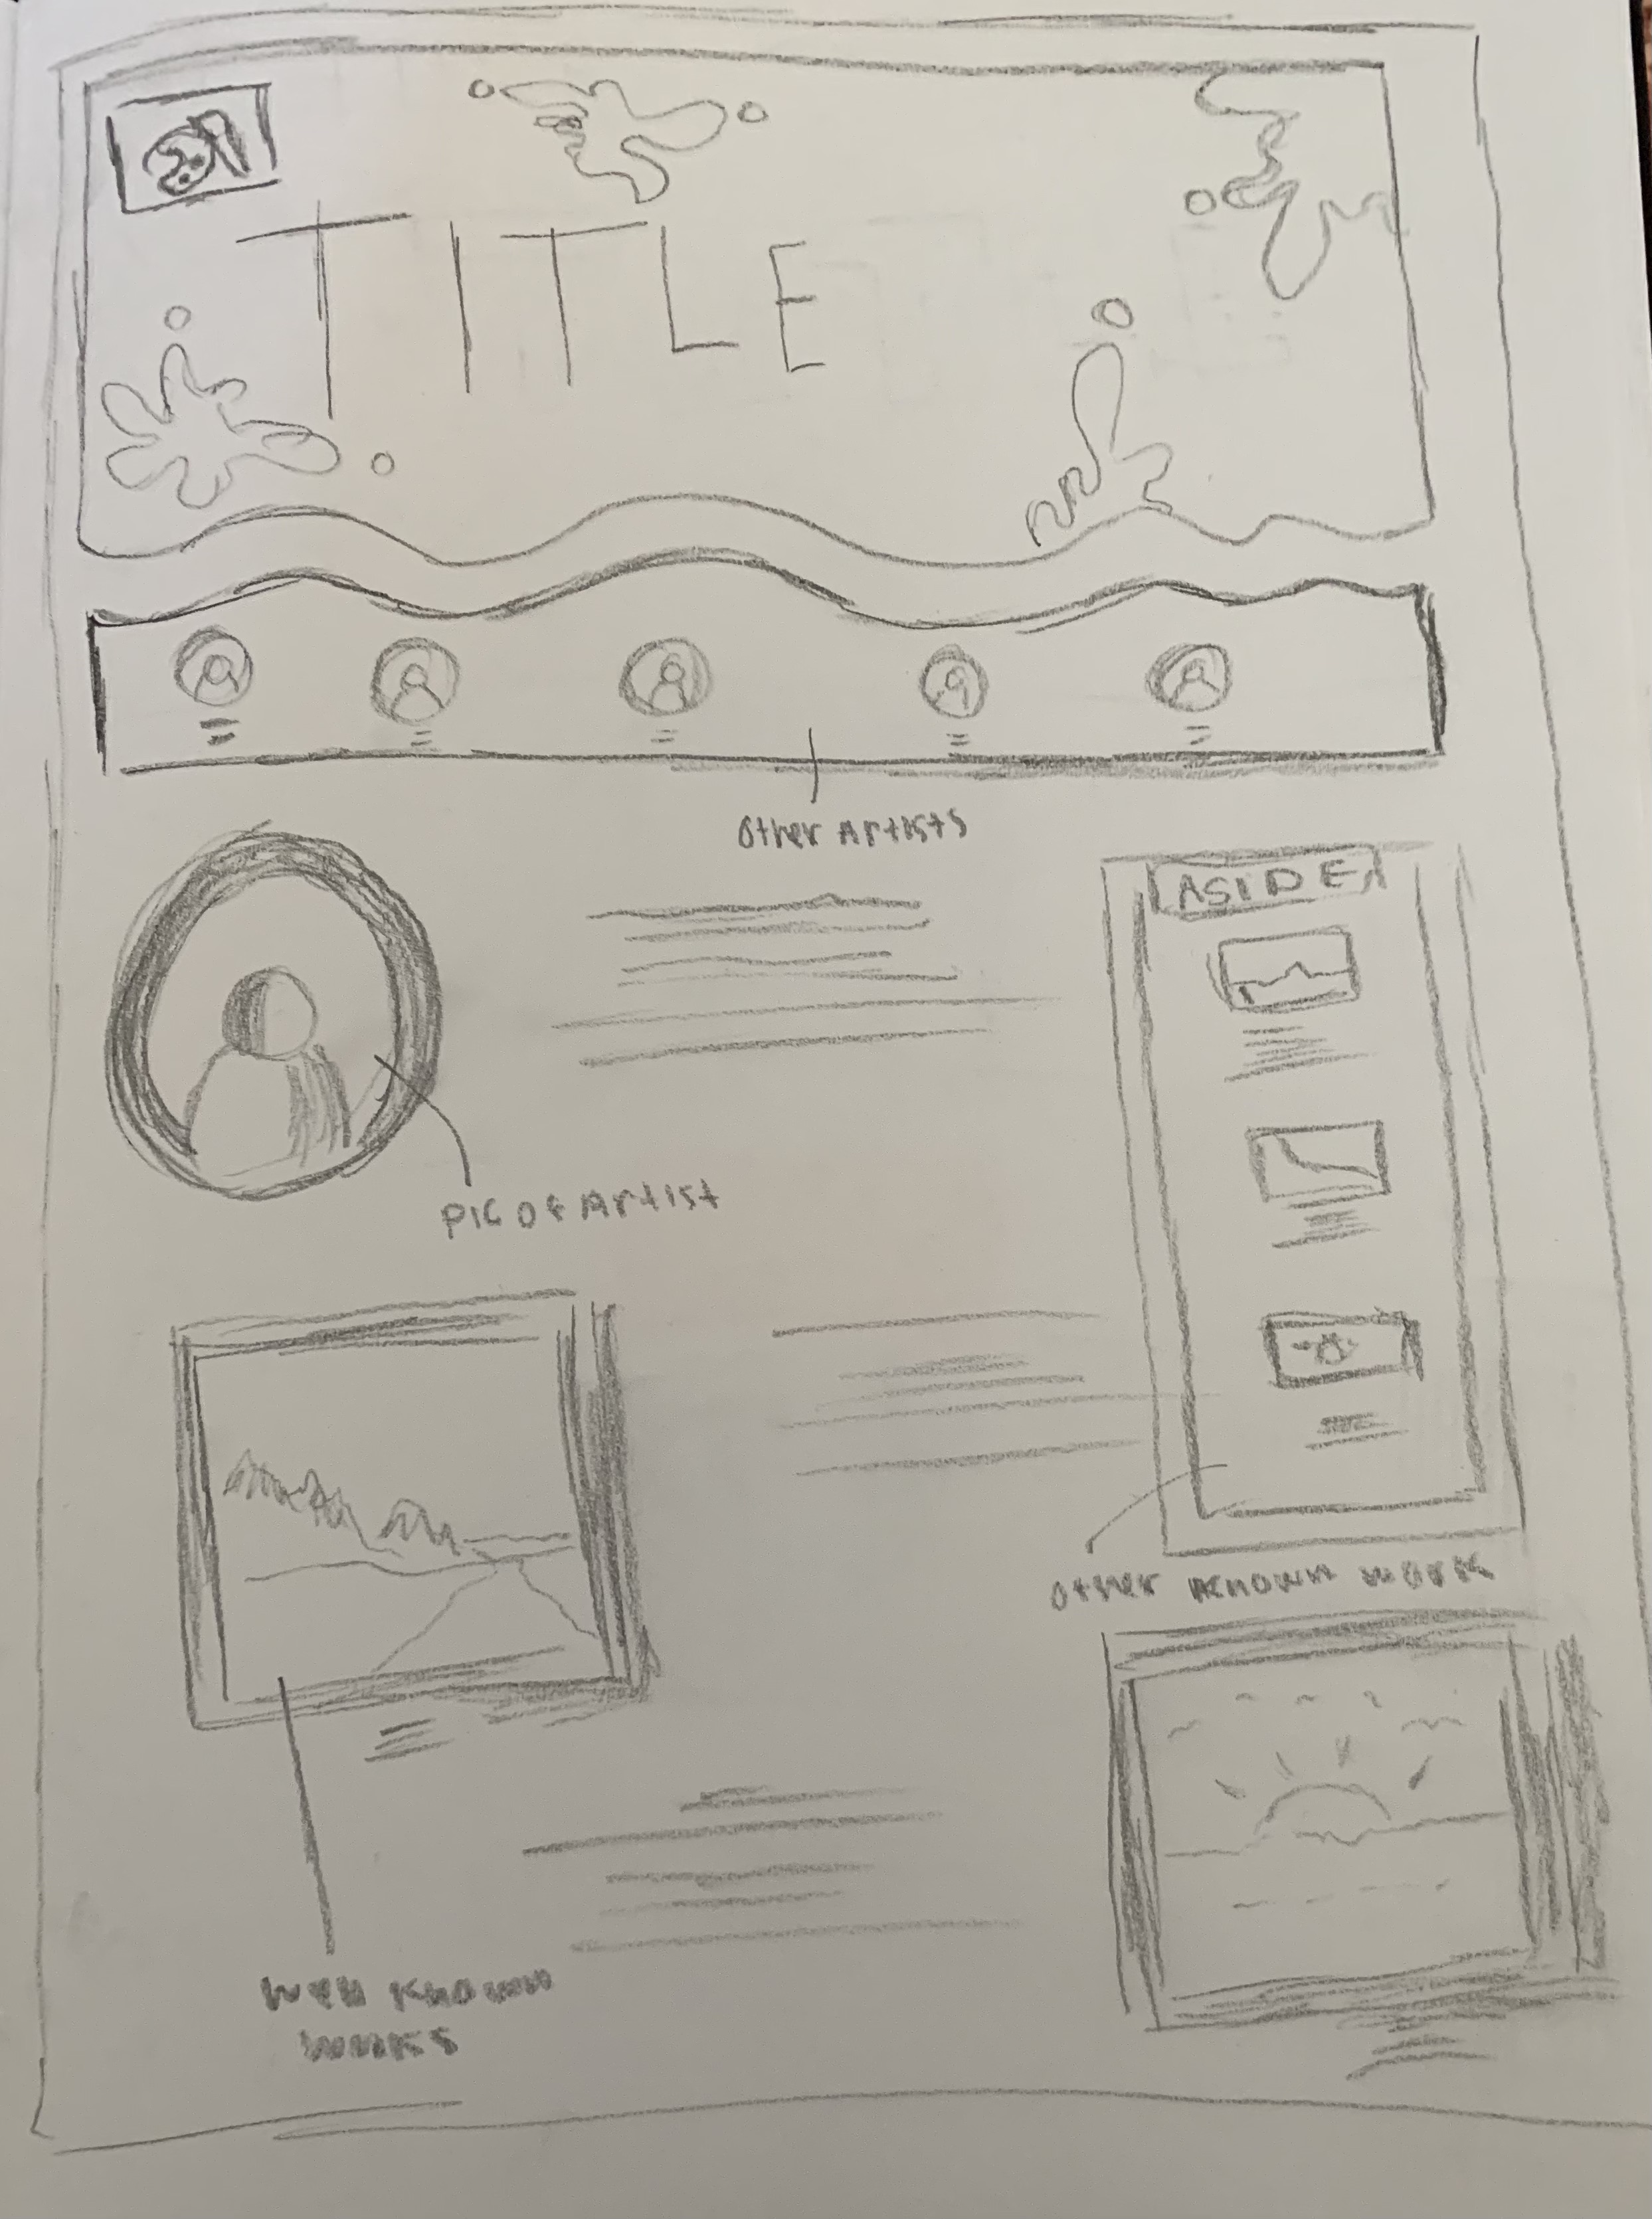 TITLE
Other Artists
ASIDE
PIC OF Artist
Other known work
Well known
works